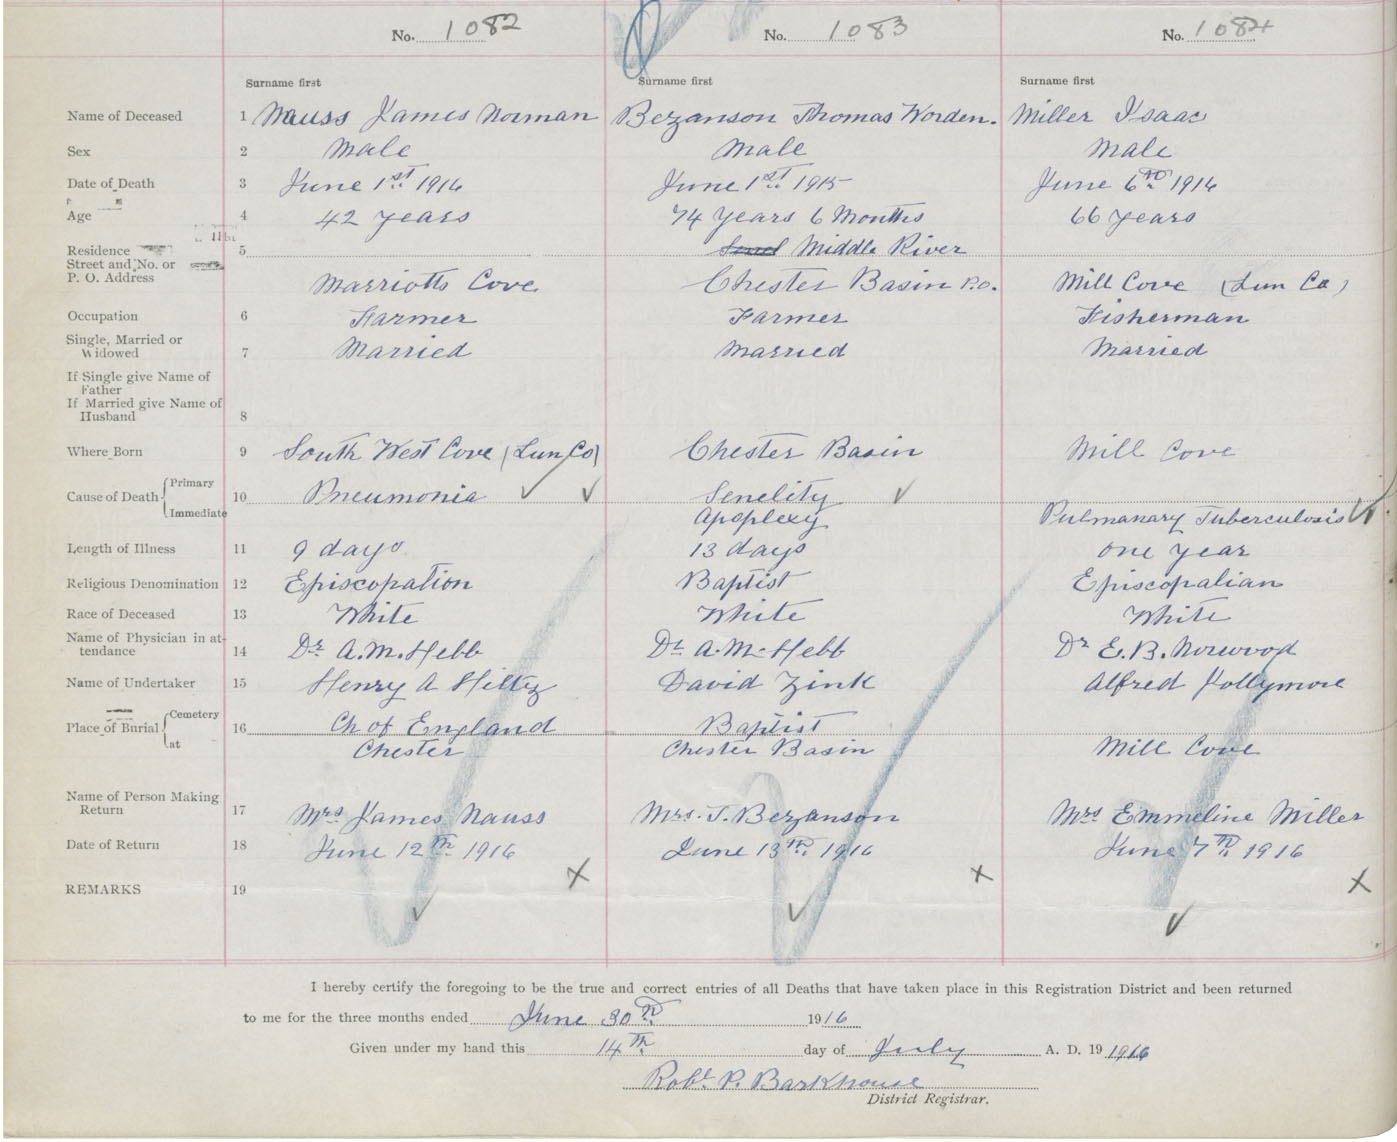 No. 1082 No. 1083 No. 1084
Surname first Surname first Surname first
Name of Deceased 1 Nauss James Norman Bezanson Thomas Worden. Miller Isaac
Sex 2 Male Male Male
Date of Death 3 June 1st 1916 June 1st 1915 June 6th 1916
Age 4 42 years 74 Years 6 Months 66 years
Residence 5 Middle River
Street and No. or
P. O. Address Marriotts Cove Chester Basin P.O. Mill Cove (Lun Co)
Occupation 6 Farmer Farmer Fisherman
Single, Married or
Widowed 7 Married Married Married
If Single give Name of
Father
If Married give Name of
Husband 8
Where Born 9 South West Cove (Lun Co) Chester Basin Mill Cove
Cause of Death Primary 10 Pneumonia Senelity
Immediate Apoplexy Pulmanary Tuberculosis
Length of Illness 11 9 days 13 days one year
Religious Denomination 12 Episcopation Baptist Episcopalian
Race of Deceased 13 White White White
Name of Physician in at-
tendance 14 Dr A.M. Hebb Dr A.M. Hebb Dr E.B. Norwood
Name of Undertaker 15 Henry A Hiltz David Zink Alfred Jollymore
Place of Burial Cemetery 16 Ch of England Baptist
at Chester Chester Basin Mill Cove
Name of Person Making
Return 17 Mrs James Nauss Mrs. T. Bezanson Mrs Emmeline Miller
Date of Return 18 June 12th 1916 June 13th 1916 June 7th 1916
REMARKS 19
I hereby certify the foregoing to be the true and correct entries of all Deaths that have taken place in this Registration District and been returned
to me for the three months ended June 30th 1916
Given under my hand this 14th day of July A. D. 19 1916
Robt P. Barkhouse
District Registrar.